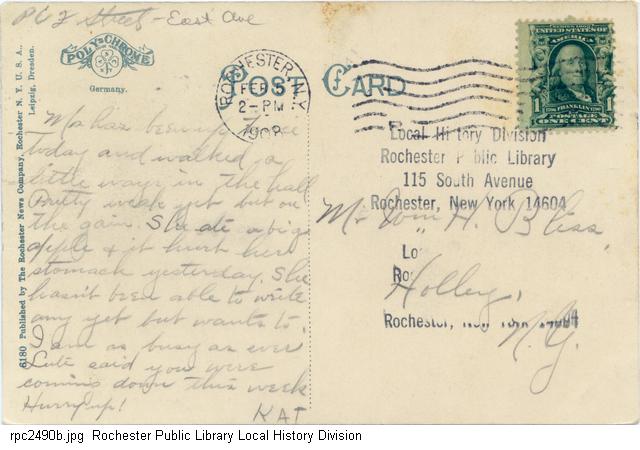 Street - East Ave
POLY-CHROME
Germany.
6180 Published by The Rochester News Company, Rochester N. Y. U. S. A.,
Leipzig, Dresden.
POST CARD
ROCHESTER, N.Y.
FEB
2-PM
1908
UNITED STATES OF AMERICA
1 FRANKLIN 1
POSTAGE
ONE CENT
Ma has been up
today and walked a
little ways in the hall
Pretty weak yet but on
the gain. She ate a big
apple & it hurt her
stomach yesterday. She
hasn't been able to write
any yet but wants to.
I am as busy as ever
Lute said you were
coming down this week
Hurry up!
KAT
Local History Division
Rochester Public Library
115 South Avenue
Rochester, New York 14604
Mr. Wm H. Bliss,
Lo
Ro
Holley,
Rochester, New York 14604
N.Y.
rpc2490b.jpg Rochester Public Library Local History Division